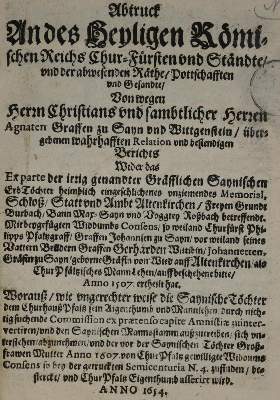 Abtruck
An des Heyligen Römi-
schen Reichs Chur-Fürsten vnd Ständte/
vnd der abwesenden Räthe/ Pottschafften
vnd Gesandte/
Von wegen
Herrn Christians vnd sambtlicher Herren
Agnaten Graffen zu Sayn vnd Wittgenstein/ über-
gebenen wahrhafften Relation vnd bestendigen
Berichts
Wider das
Ex parte der irrig genandter Gräfflichen Saynischen
ErbTöchter heimblich eingeschlichenes vnziemendes Memorial,
Schloß/ Statt vnd Ambt Altenkirchen/ Freyen Grundt
Burbach/ Bann Max-Sayn vnd Voggtey Roßbach betreffendt.
Mit beygefügten Widdumbs Consens, so weiland Churfürst Phi-
lipps Pfaltzgraff/ Graffen Johannien zu Sayn/ vor weiland seines
Vattern Brüdern Graffen Gerhardten Wittib/ Johannetten,
Gräfin zu Sayn/ geborne Gräffin vor Wied auff Altenkirchen/ als
Chur Pfältzisches Mannlehen/ auff bescheben bitte/
Anno 1507. ertheilt hat.
Worauß/ wie vngerechter weise die Saynische Töchter
dem Churhauß Pfaltz sein Aigenthumb vnd Mannlehen durch nich-
tig suchende Commission ex prætenso capite Amnistiæ zu inter-
vertiren/ vnd den Saynischen Mannstamm außzutreiben/ sich vn-
terstehen/ abzunehmen/ vnd der vor der Saynischen Töchter Groß-
frawen Mutter Anno 1607. von Chur Pfaltz gewilligte Widdumbs
Consens in bey der getruckten Semicenturia N. 4. zufinden/
vnd Chur Pfaltz Eigenthumb asserirt wird.
ANNO 1654.